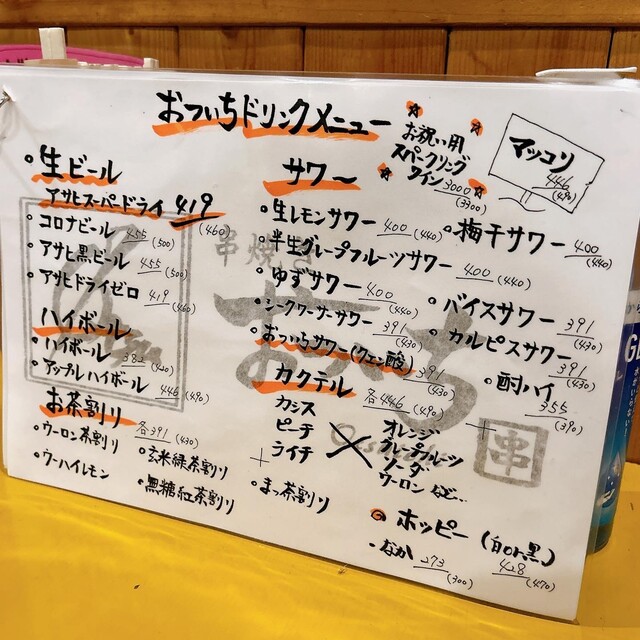 おついちドリンクメニュー
お祝い用
スパークリング
ワイン 3000
(3300)
マッコリ
446
(490)
・生ビール
アサヒスーパードライ 419
(460)
・コロナビール 455
(500)
・アサヒ黒ビール 455
(500)
・アサヒドライゼロ 419
(460)
ハイボール
・ハイボール 382
(420)
・アップルハイボール 446
(490)
お茶割り 各391
(430)
・ウーロン茶割り
・玄米緑茶割り
・ウーハイレモン
・無糖紅茶割り
・まっ茶割り
サワー
・生レモンサワー 400
(440)
・半生グレープフルーツサワー 400
(440)
・ゆずサワー 400
(440)
・シークワーサーサワー 391
(430)
・おついちサワー(クエン酸) 391
(430)
・梅干サワー 400
(440)
・バイスサワー 391
(430)
・カルピスサワー 391
(430)
・酎ハイ 355
(390)
カクテル 各446
(490)
カシス
ピーチ
ライチ
オレンジ
グレープフルーツ
ソーダ
ウーロン など…
ホッピー (白or黒) 428
(470)
・なか 273
(300)
串焼き
おついち
串